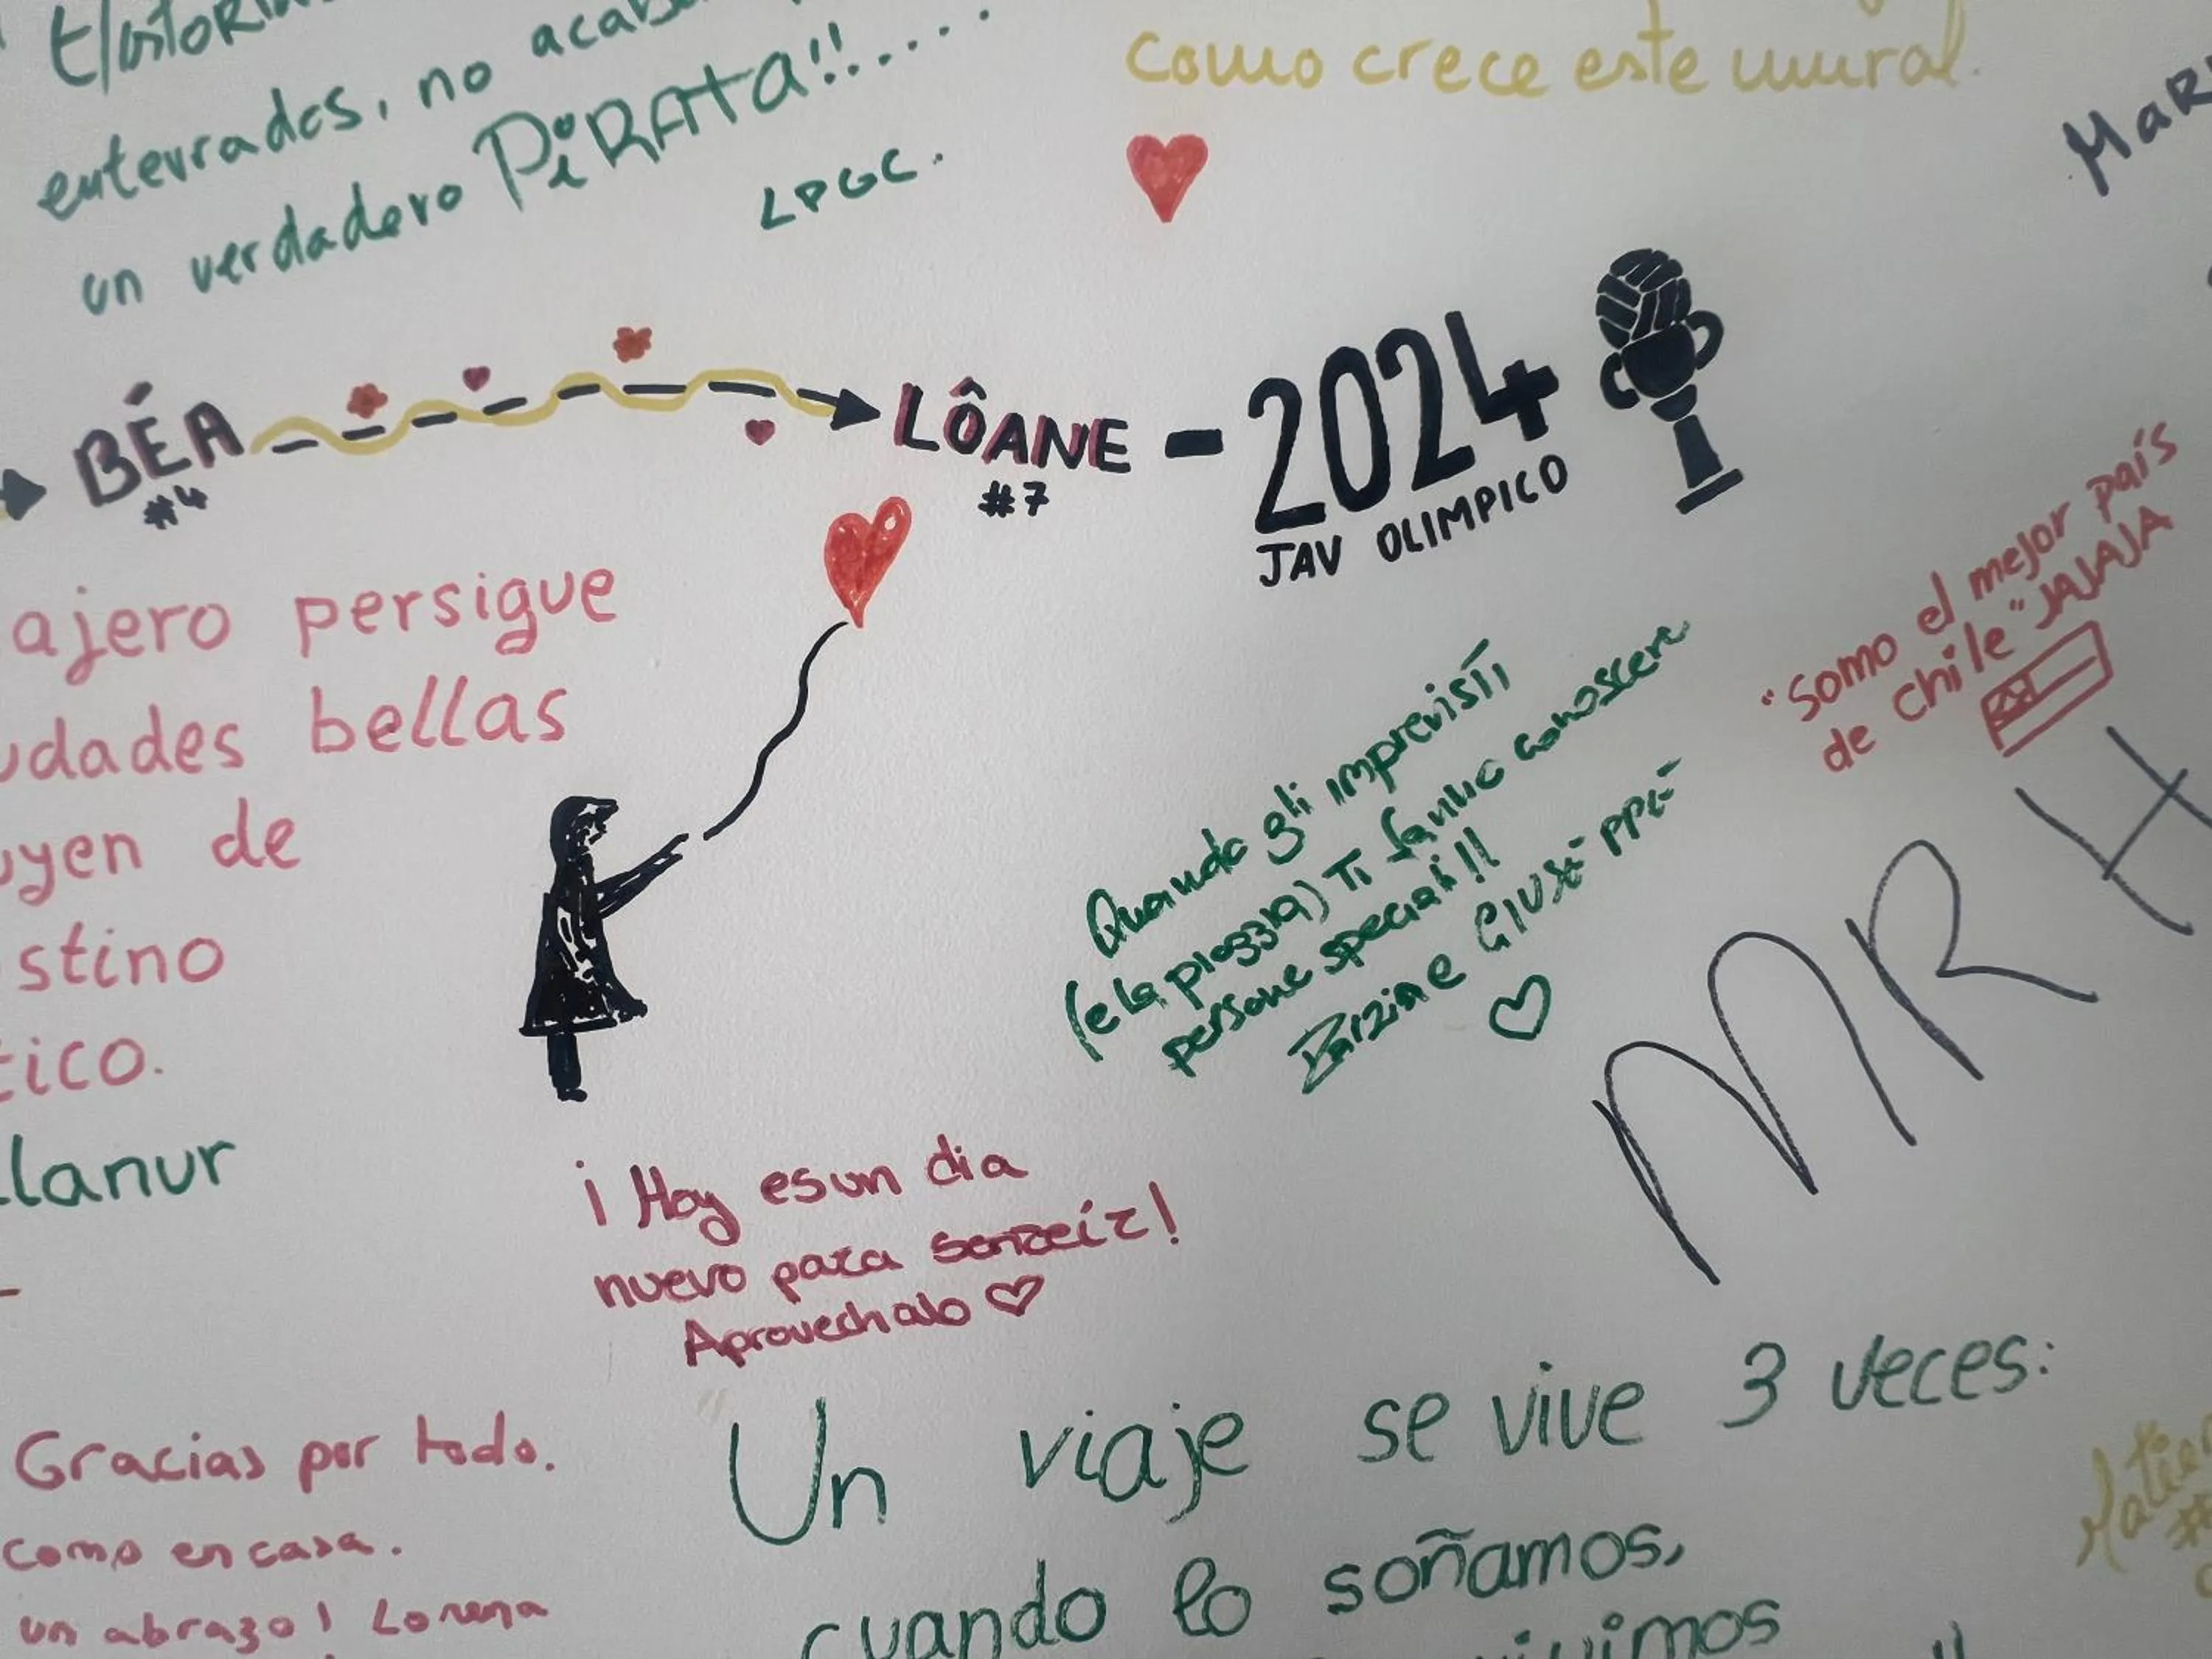 enterrados, no
un verdadero PiRATA!!....
LPGC.
como crece este mural.
BÉA
#4
LÔANE - 2024
#7
JAV OLIMPICO
ajero persigue
udades bellas
uyen de
stino
tico.
lanur
"Somo el mejor país
de chile" JAJAJA
Quando gli imprevisti
(e la pioggia) Ti fanno conoscere
persone speciali!!
e GIUSEPPE
MRH
¡Hoy es un dia
nuevo para sonreír!
Aprovechalo
Gracias por todo.
como en casa.
un abrazo! Lorena
Un viaje se vive 3 veces:
cuando lo soñamos,